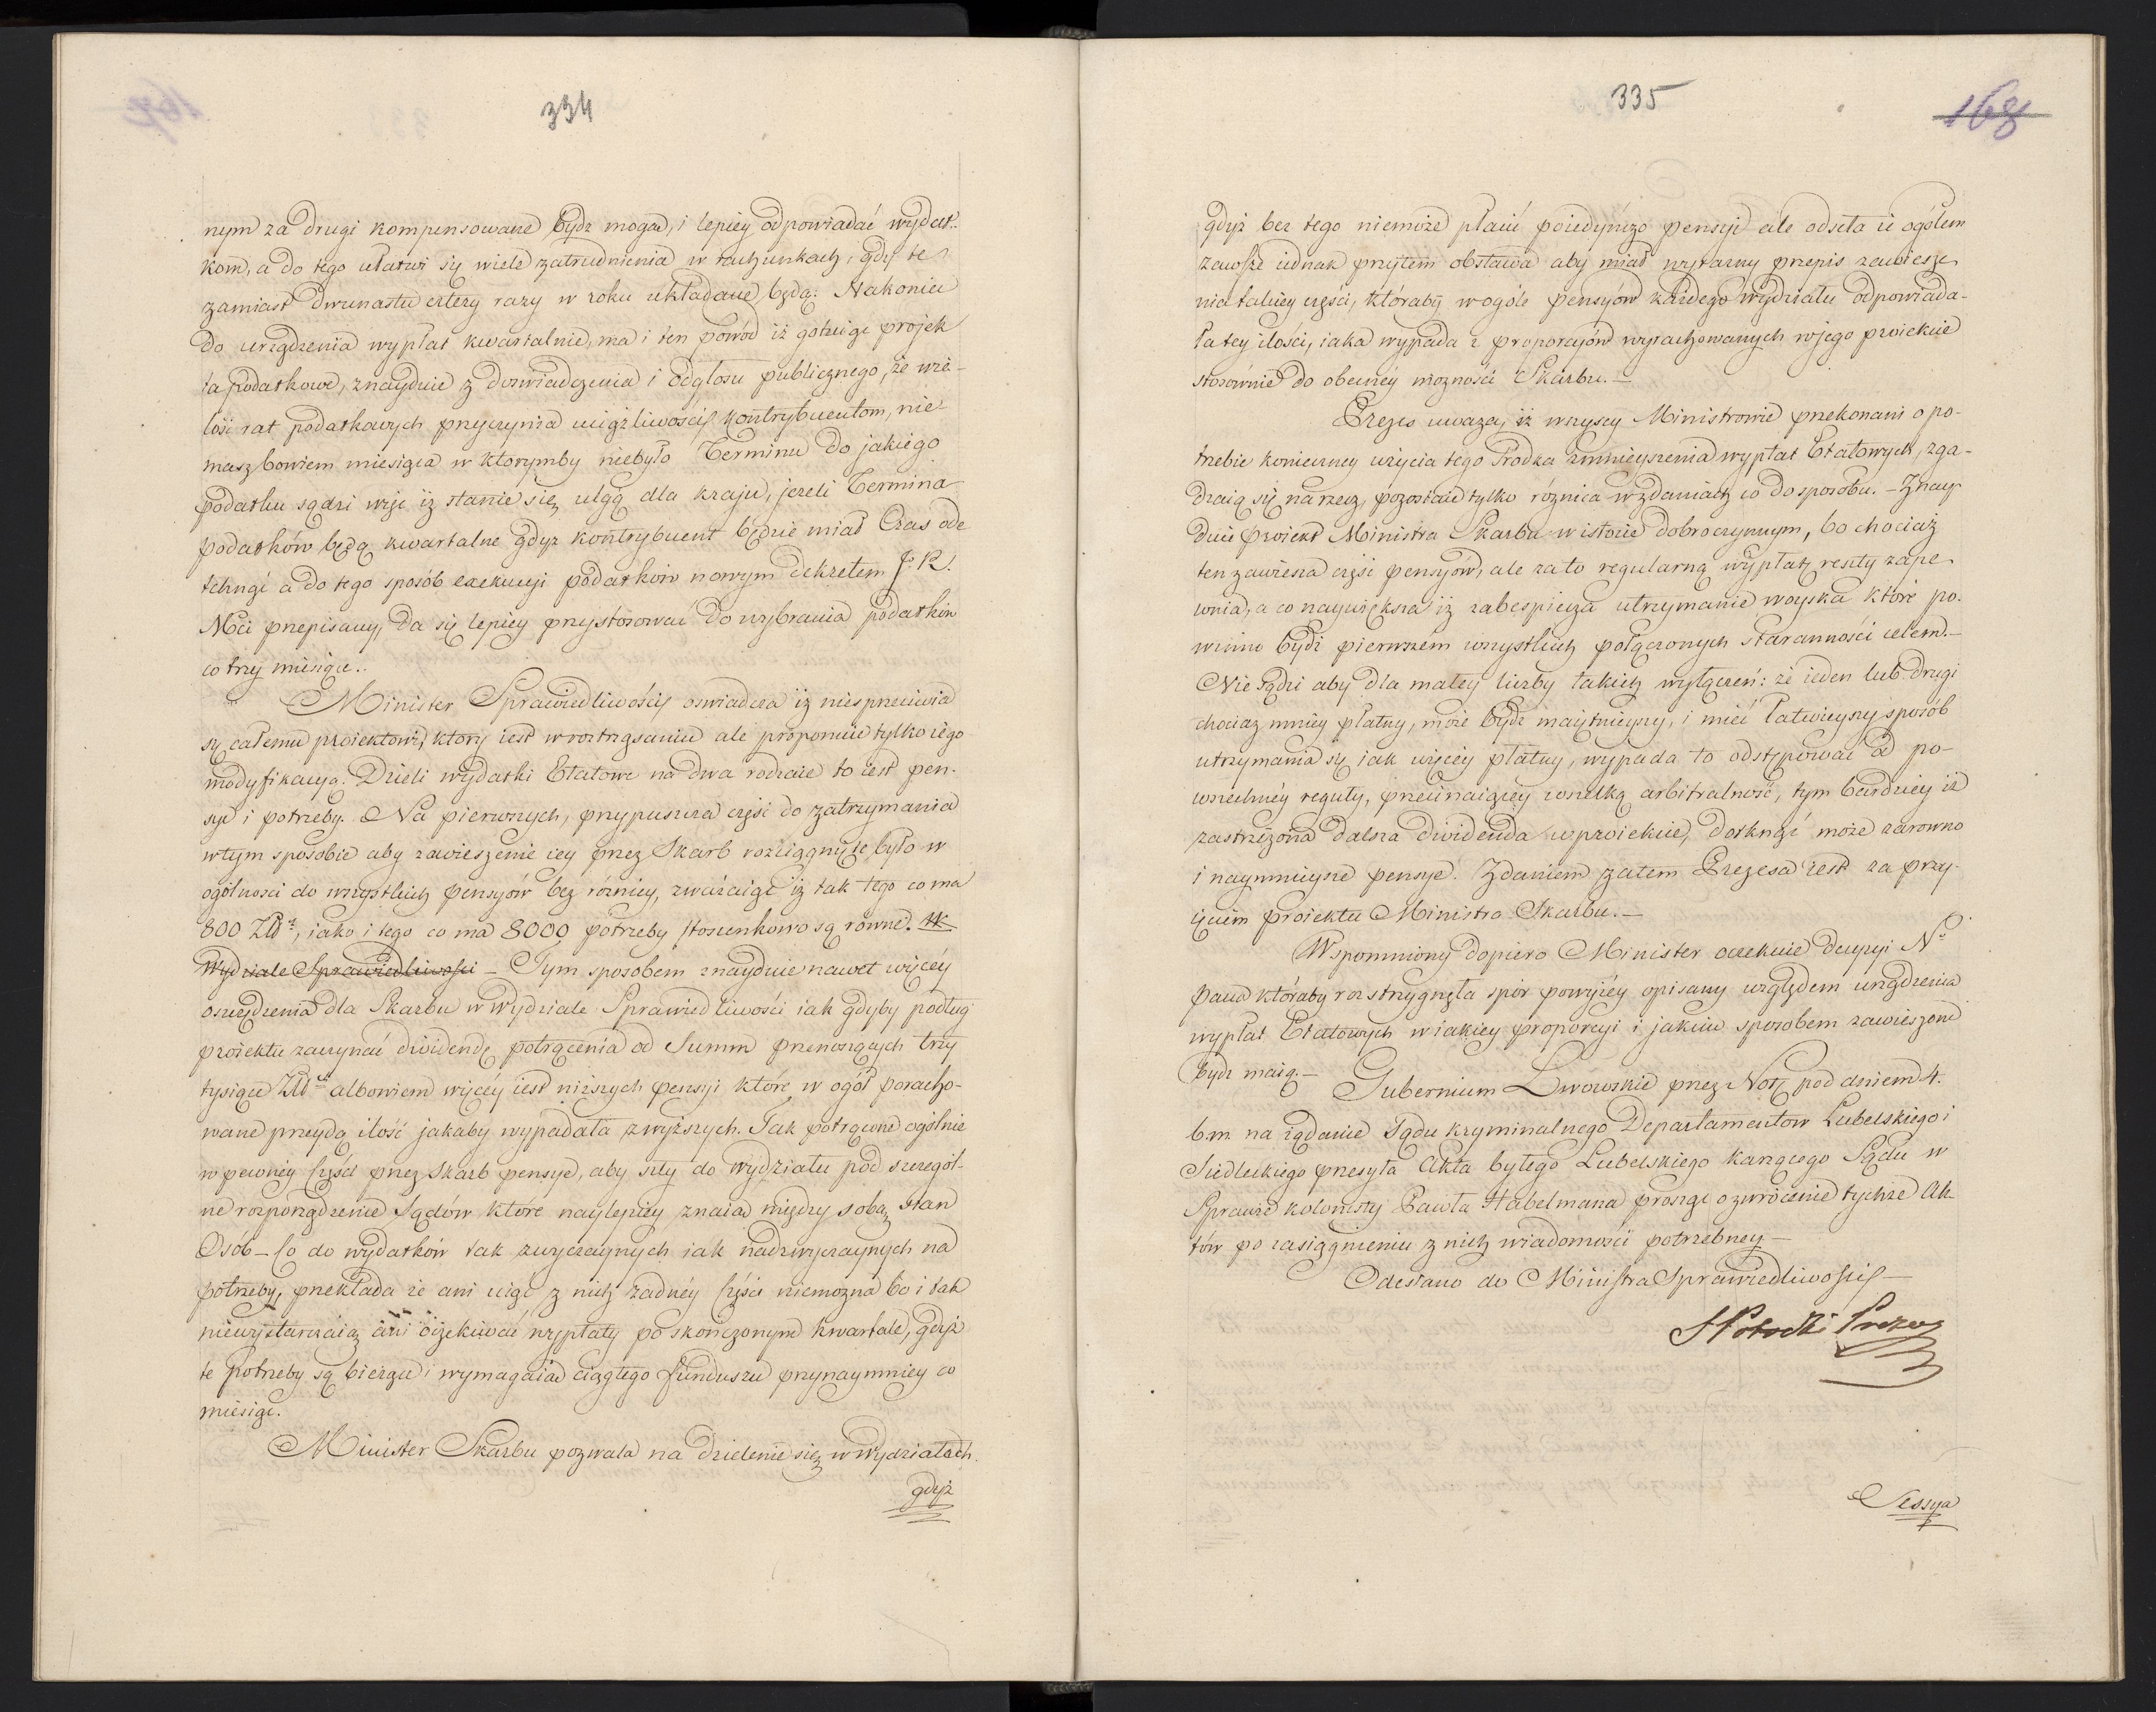 334
nym za drugi kompensowane bydz mogą, i lepiey odpowiadać wydat-
kom, a do tego ułatwi się wiele zatrudnienia w rachunkach, gdy te
zamiast dwunastu cztery razy w roku układane będą. Nakoniec
do urządzenia wypłat kwartalnie, ma i ten powód iż gotuiąc projek
ta podatkowe, znayduie z doswiadczenia i odgłosu publicznego, że wie-
lość rat podatkowych przyczynia uciążliwości kontrybuentom, nie-
masz bowiem miesiąca w ktorymby niebyło Terminu do jakiego
podatku sądzi więc iż stanie się ulgą dla kraju, jeżeli Termina
podatków będą kwartalne gdyż kontrybuent będzie miał Czas ode
tchnąć a do tego sposób exekucyi podatków nowym dekretem J: K:
Mci przepisany, da się lepiey przystosować do wybrania podatków
co trzy miesiące..
Minister Sprawiedliwości oswiadcza iż niesprzeciwia
się całemu proiektowi, ktory iest w roztrząsaniu ale proponuie tylko iego
modyfikacyą. Dzieli wydatki Etatowe na dwa rodzaie to iest pen-
sye i potrzeby. Na pierwszych, przypuszcza część do zatrzymania
w tym sposobie aby zawieszenie iey przez Skarb rozciągnięte było w
ogólnosci do wszystkich pensyów bez różnicy, zważaiąc iż tak tego co ma
800 Złł, iako i tego co ma 8000 potrzeby stosunkowo są równe. W
Wydziale Sprawiedliwości – Tym sposobem znayduie nawet więcey
oszczędzenia dla Skarbu w Wydziale Sprawiedliwości iak gdyby podług
proiektu zaczynać dividendę potrącenia od Summ przenoszących trzy
tysiące Złł albowiem więcey iest niższych pensyi które w ogół poracho-
wane przeydą ilość jakaby wypadała z wyższych. Tak potrącone ogólnie
w pewney Części przez Skarb pensye, aby szły do Wydziału pod szczegól-
ne rozporządzenie Sądów które naylepiey znaią między sobą stan
Osób – Co do wydatków tak zwyczaynych iak nadzwyczaynych na
potrzeby, przekłada że ani uiąć z nich żadney Części niemożna bo i tak
niewystarczaią ani oczekiwać wypłaty po skończonym kwartale, gdyż
te potrzeby są bieżące i wymagaią ciągłego funduszu przynaymniey co
miesiąc.
Minister Skarbu pozwala na dzielenie się w Wydziałach.
gdyż
335
168
gdyż bez tego niemoże płacić poiedyńczo pensye ale odseła ie ogółem
zawsze iednak przytem obstawa aby miał wyrazny przepis zawiesze
nia takiey części, któraby w ogóle pensyów każdego wydziału odpowiada-
ła tey ilości, iaka wypada z proporcyów wyrachowanych w jego proiekcie
stosównie do obecney możności Skarbu. –
Prezes uważa, iż wszyscy Ministrowie przekonani o po-
trzebie konieczney użycia tego srodka zmnieyszenia wypłat Etatowych, zga-
dzaią się na rzecz, pozostaie tylko różnica w zdaniach co do sposobu. – Znay
duie proiekt Ministra Skarbu w istocie dobroczynnym, bo chociaż
ten zawiesza część pensyów, ale za to regularną wypłatę reszty zape
wnia, a co naywiększa iż zabespiecza utrzymanie woyska które po-
winno bydź pierwszem wszystkich połączonych staranności celem. –
Nie sądzi aby dla małey liczby takich wyłączeń: że ieden lub drugi
chociaz mniey płatny, może bydz maiętnieyszy, i mieć łatwieyszy sposób
utrzymania się iak więcey płatny, wypada to odstępować od po-
wszechney reguły, przecinaiącey wszelką arbitralność, tym bardziey iż
zastrzeżona dalsza dividenda w proiekcie, dotknąć może zarowno
i naymnieysze pensye. Zdaniem zatem Prezesa iest za przy-
ięciem proiektu Ministra Skarbu. –
Wspomniony dopiero Minister oczekuie decyzyi N.
Pana któraby rozstrzygnęła spór powyżey opisany względem urządzenia
wypłat Etatowych w iakiey proporcyi i jakim sposobem zawieszone
bydz maią. –
Gubernium Lwowskie przez Notę pod dniem 4.
b. m. na żądanie Sądu kryminalnego Departamentow Lubelskiego i
Siedleckiego przesyła Akta byłego Lubelskiego karzącego Sądu w
Sprawie kolonisty Pawła Habelmana prosząc o zwrócenie tychże Ak
tów po zasiągnieniu z nich wiadomości potrzebney –
Odesłano do Ministra Sprawiedliwości –
S Potocki Prezes
Sessya